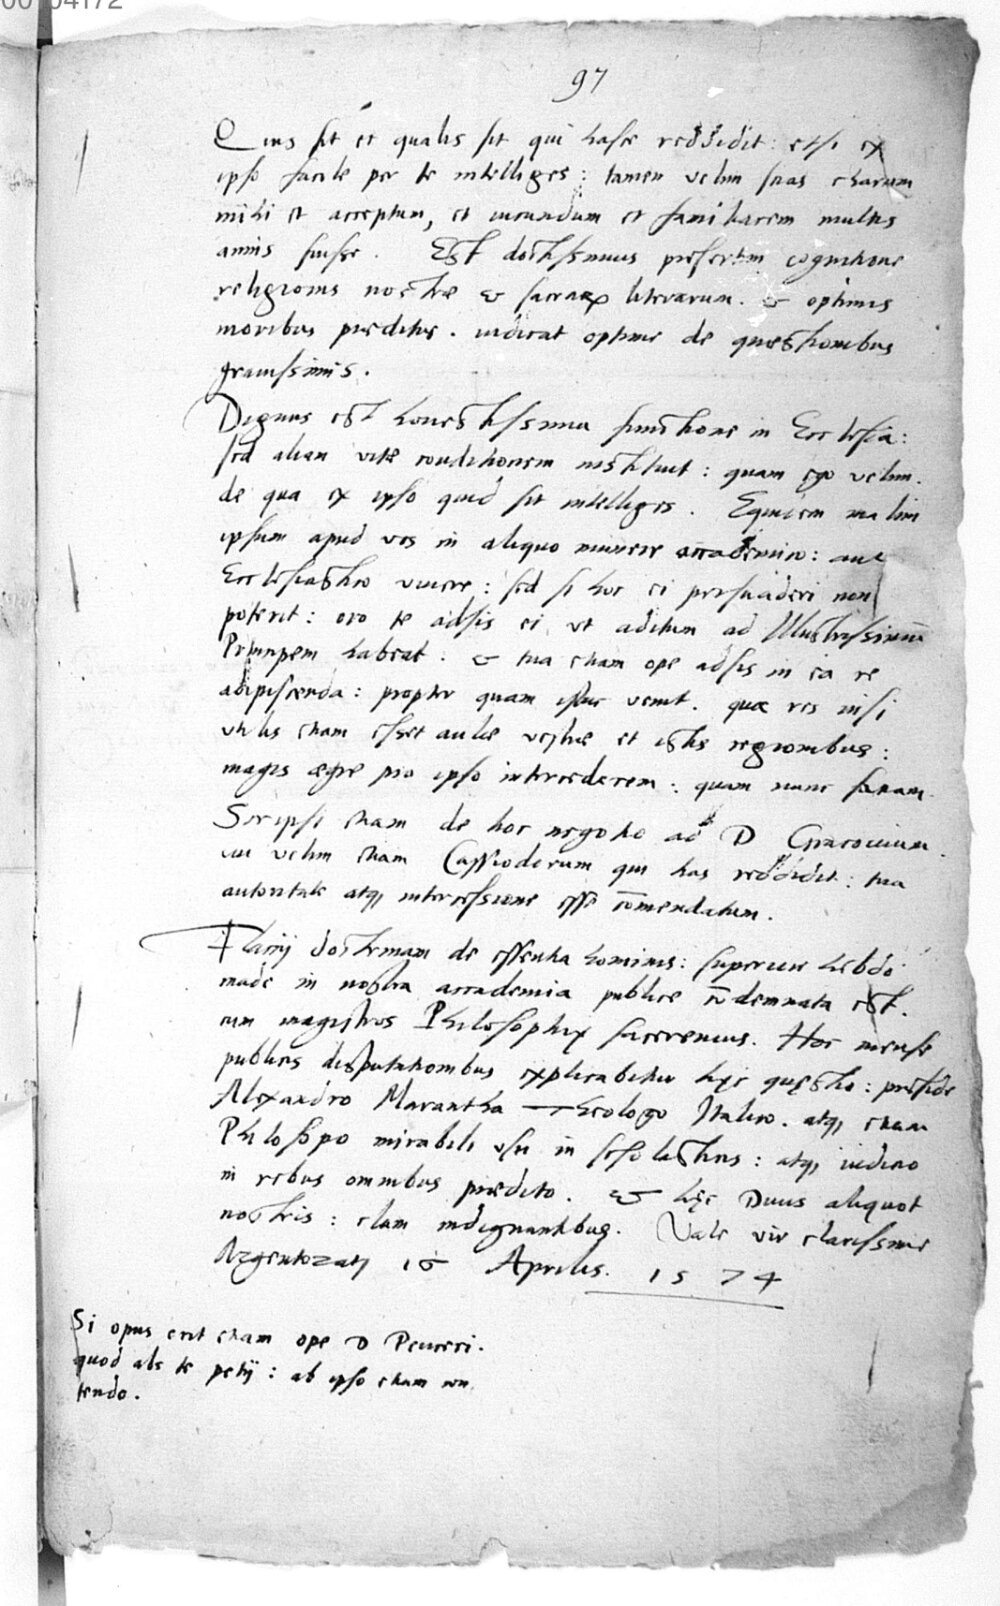 97
Quis sit et qualis sit qui hasce reddidit: etsi ex
ipso facile per te intelliges: tamen velim scias charum
mihi et acceptum, et iucundum et familiarem multis
annis fuisse. Est doctissimus presertim cognitione
religionis nostræ & sacrarum literarum. & optimis
moribus præditus. iudicat optime de quæstionibus
gravissimis.
Dignus est honestissima functione in Ecclesia:
sed aliam vitæ conditionem instituit: quam ego velim.
de qua ex ipso quid sit intelliges. Equidem malim
ipsum apud vos in aliquo munere accademico: aut
Ecclesiastico vivere: sed si hoc ei persuaderi non
poterit: oro te adsis ei ut aditum ad Illustrissimū
Principem habeat. & tua etiam ope adsis in ea re
adipiscenda: propter quam istuc venit. quæ res nisi
utilis etiam esset aulæ vestræ et istis regionibus:
magis ægre pro ipso intercederem: quam nunc faciam.
Scripsi etiam de hoc negotio ad D Cracovium.
cui velim etiam Cassiodorum qui has reddidit: tua
autoritate atq; intercessione esse cōmendatum.
Flacij doctrinam de essentia hominis: superiore hebdo
made in nostra accademia publice cōdemnata est.
cum magistros Philosophiæ faceremus. Hoc mense
publicis disputationibus explicabitur hęc quęstio: præside
Alexandro Marantha Theologo Italico. atq; etiam
Philosopo mirabili usu in scholasticis: atq; iudicio
in rebus omnibus prædito. & hęc Divis aliquot
nostris: clam indignantibus. Vale vir clarissime
Argentorati 16 Aprilis. 1574
Si opus erit etiam ope D Peuceri.
quod abs te petij: ab ipso etiam con
tendo.